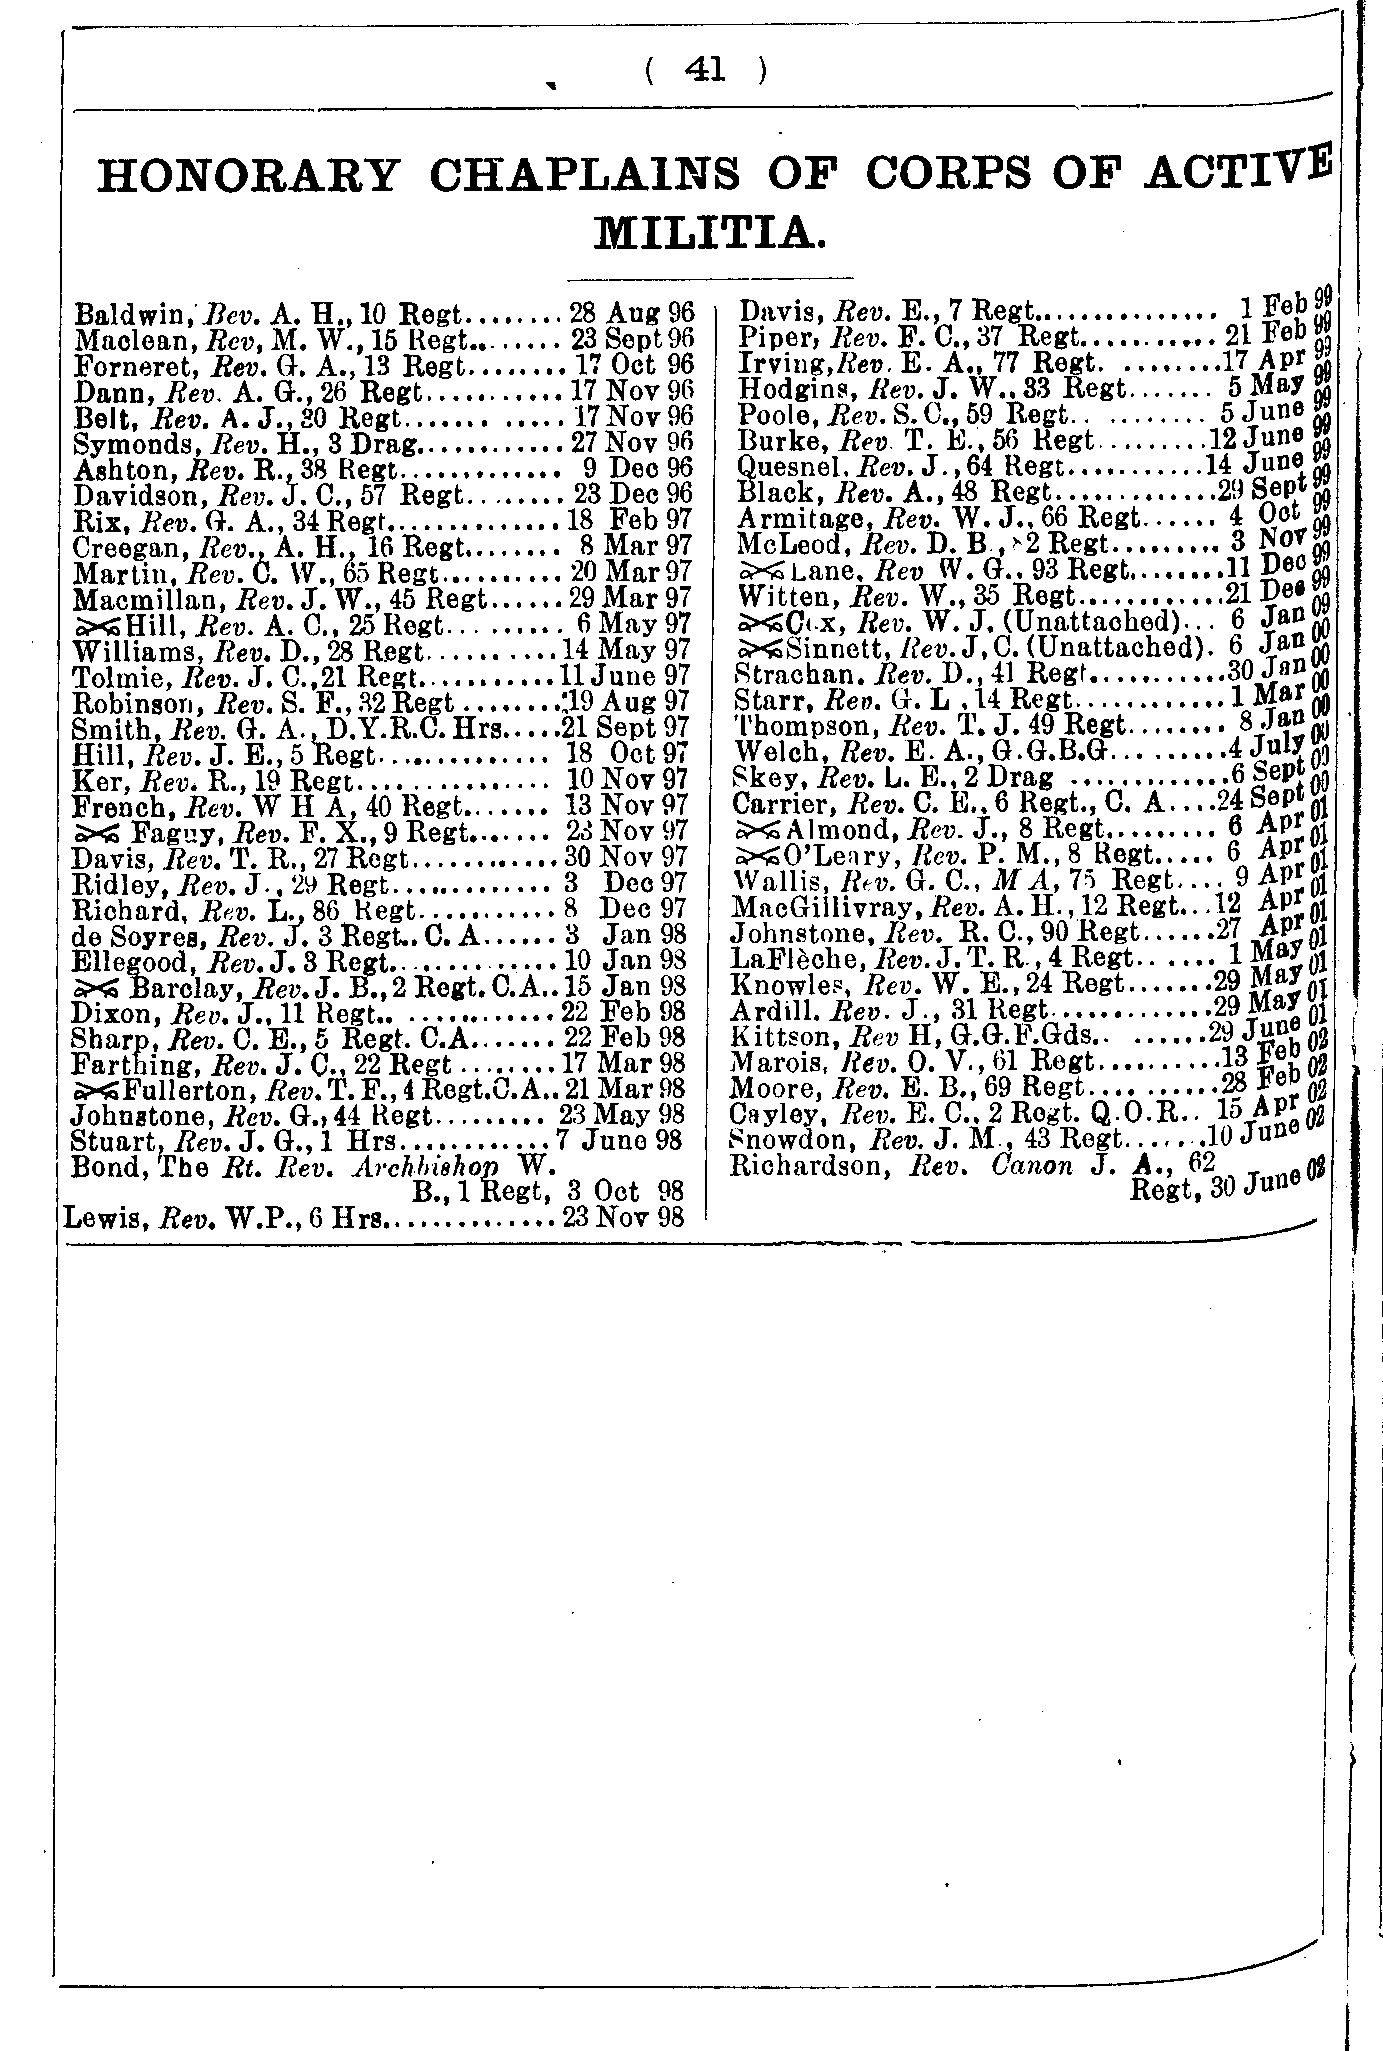 ( 41 )
HONORARY CHAPLAINS OF CORPS OF ACTIVE
MILITIA.
Baldwin, Rev. A. H., 10 Regt........ 28 Aug 96
Maclean, Rev, M. W., 15 Regt........ 23 Sept 96
Forneret, Rev. G. A., 13 Regt........ 17 Oct 96
Dann, Rev. A. G., 26 Regt........... 17 Nov 96
Belt, Rev. A. J., 20 Regt....... ..... 17 Nov 96
Symonds, Rev. H., 3 Drag............ 27 Nov 96
Ashton, Rev. R., 38 Regt............ 9 Dec 96
Davidson, Rev. J. C., 57 Regt........ 23 Dec 96
Rix, Rev. G. A., 34 Regt............. 18 Feb 97
Creegan, Rev., A. H., 16 Regt........ 8 Mar 97
Martin, Rev. C. W., 65 Regt.......... 20 Mar 97
Macmillan, Rev. J. W., 45 Regt...... 29 Mar 97
Hill, Rev. A. C., 25 Regt... ...... 6 May 97
Williams, Rev. D., 28 Regt.......... 14 May 97
Tolmie, Rev. J. C., 21 Regt........... 11 June 97
Robinson, Rev. S. F., 32 Regt ........ 19 Aug 97
Smith, Rev. G. A., D.Y.R.C. Hrs..... 21 Sept 97
Hill, Rev. J. E., 5 Regt.............. 18 Oct 97
Ker, Rev. R., 19 Regt............... 10 Nov 97
French, Rev. W H A, 40 Regt....... 13 Nov 97
Faguy, Rev. F. X., 9 Regt....... 23 Nov 97
Davis, Rev. T. R., 27 Regt............ 30 Nov 97
Ridley, Rev. J., 29 Regt............. 3 Dec 97
Richard, Rev. L., 86 Regt........... 8 Dec 97
de Soyres, Rev. J. 3 Regt.. C. A...... 3 Jan 98
Ellegood, Rev. J. 3 Regt............. 10 Jan 98
Barclay, Rev. J. B., 2 Regt. C.A.. 15 Jan 98
Dixon, Rev. J., 11 Regt.. ........... 22 Feb 98
Sharp, Rev. C. E., 5 Regt. C.A....... 22 Feb 98
Farthing, Rev. J. C., 22 Regt ........ 17 Mar 98
Fullerton, Rev. T. F., 4 Regt.C.A.. 21 Mar 98
Johnstone, Rev. G., 44 Regt......... 23 May 98
Stuart, Rev. J. G., 1 Hrs............ 7 June 98
Bond, The Rt. Rev. Archbishop W.
B., 1 Regt, 3 Oct 98
Lewis, Rev. W.P., 6 Hrs.............. 23 Nov 98
Davis, Rev. E., 7 Regt............... 1 Feb 99
Piper, Rev. F. C., 37 Regt........... 21 Feb 99
Irving, Rev. E. A., 77 Regt. ........ 17 Apr 99
Hodgins, Rev. J. W.. 33 Regt....... 5 May 99
Poole, Rev. S. C., 59 Regt.. ........ 5 June 99
Burke, Rev. T. E., 56 Regt......... 12 June 99
Quesnel. Rev. J., 64 Regt........... 14 June 99
Black, Rev. A., 48 Regt............. 29 Sept 99
Armitage, Rev. W. J., 66 Regt...... 4 Oct 99
McLeod, Rev. D. B., 2 Regt......... 3 Nov 99
Lane, Rev W. G., 93 Regt........ 11 Dec 99
Witten, Rev. W., 35 Regt............ 21 Dec 99
Cox, Rev. W. J. (Unattached)... 6 Jan 09
Sinnett, Rev. J, C. (Unattached). 6 Jan 00
Strachan. Rev. D., 41 Regt........... 30 Jan 00
Starr, Rev. G. L., 14 Regt............ 1 Mar 00
Thompson, Rev. T. J. 49 Regt........ 8 Jan 00
Welch, Rev. E. A., G.G.B.G......... 4 July 00
Skey, Rev. L. E., 2 Drag ............. 6 Sept 00
Carrier, Rev. C. E., 6 Regt., C. A.... 24 Sept 00
Almond, Rev. J., 8 Regt......... 6 Apr 01
O'Leary, Rev. P. M., 8 Regt..... 6 Apr 01
Wallis, Rev. G. C., M A, 75 Regt.... 9 Apr 01
MacGillivray, Rev. A. H., 12 Regt... 12 Apr 01
Johnstone, Rev. R. C., 90 Regt...... 27 Apr 01
LaFlèche, Rev. J. T. R., 4 Regt...... 1 May 01
Knowles, Rev. W. E., 24 Regt....... 29 May 01
Ardill. Rev. J., 31 Regt............. 29 May 01
Kittson, Rev H, G.G.F.Gds.. ...... 29 June 01
Marois, Rev. O. V., 61 Regt.......... 13 Feb 02
Moore, Rev. E. B., 69 Regt.......... 28 Feb 02
Cayley, Rev. E. C., 2 Regt. Q.O.R.. 15 Apr 02
Snowdon, Rev. J. M., 43 Regt....... 10 June 02
Richardson, Rev. Canon J. A., 62
Regt, 30 June 02